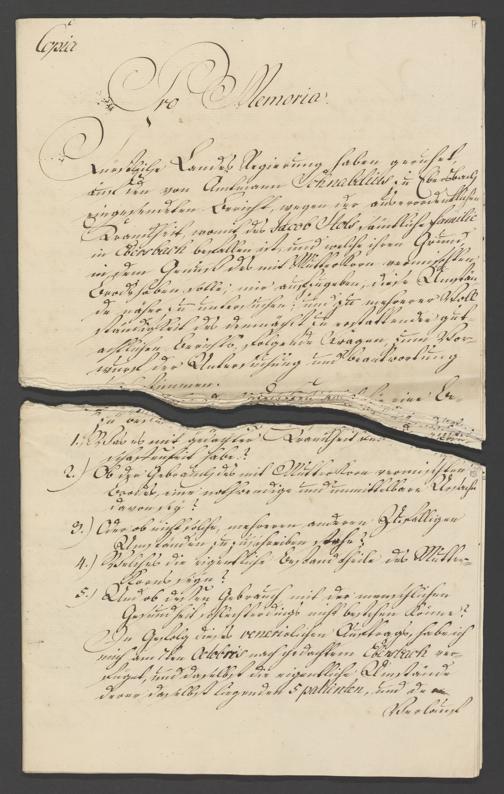 Copia
Pro Memoria.
Fürstliche Landes Regierung haben geruhet,
aus den von Amtmann Schnabelius zu Ebersbach
eingesendeten Bericht, wegen der auserordentlichen
Krankheit, womit des Jacob Stolz sämtliche familie
in Ebersbach befallen ist, und welche ihren Grund
in dem Genuß des mit Mutterkorn vermischten
Brods haben solle; mir aufzugeben, diese Umstän
de näher zu untersuchen; und zu mehrerer Voll
ständigkeit des demnächst zu erstattenden gut
achtlichen Berichts, folgende Fragen zum Vor
wurf der Untersuchung und Beantwortung
zu bestimmen.
1.) Was es mit gedachter Krankheit für eine Be
schaffenheit habe?
2.) Ob der Gebrauch des mit Mutterkorn vermischten
Brodes, eine nothwendige und unmittelbare Ursache
davon sey?
3.) Oder ob nicht solche, mehreren anderen Zufälligen
Umständen zuzuschreiben stehe?
4.) Welches die eigentliche Bestandtheile des Mutter-
Korns seyn?
5.) Und ob dessen Gebrauch mit der menschlichen
Gesundheit schlechterdings nicht bestehen könne?
In Gefolg dieses venerirlichen Auftrags, habe ich
mich am ten Octobris nach gedachtem Ebersbach ver
füget, und daselbst die eigentliche Umstände
derer daselbst liegenden 5 patienten, und den
Verlauf